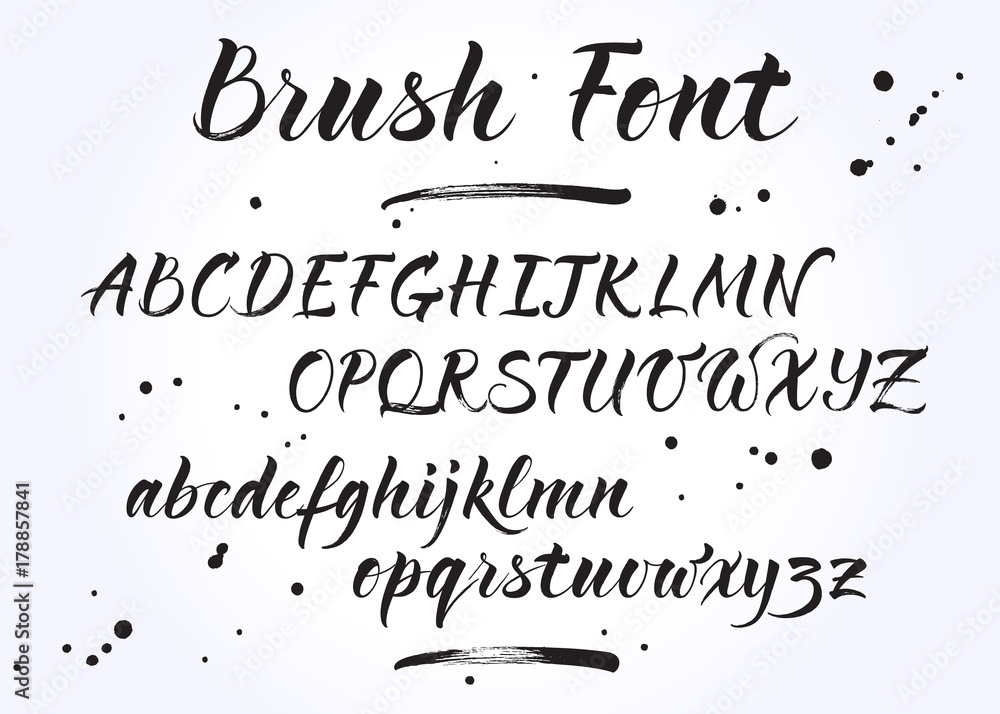 Brush Font
ABCDEFGHIJKLMN
OPQRSTUVWXYZ
abcdefghijklmn
opqrstuvwxyzz
Adobe Stock | #178857841